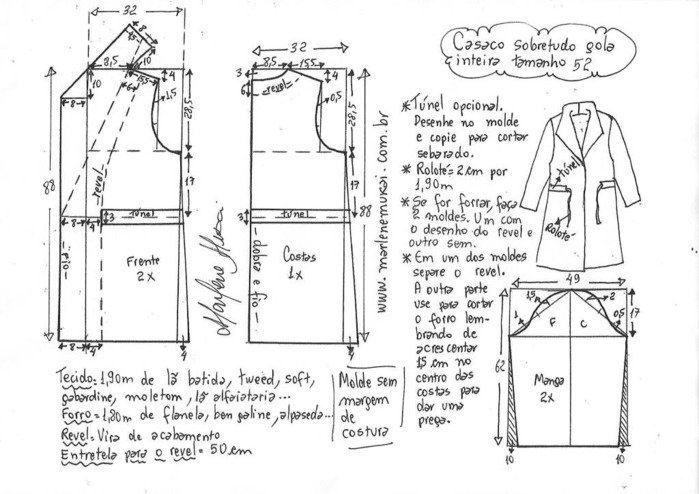 Casaco sobretudo gola
inteira tamanho 52
32
8
15
10
8,5
15,5
6
4
10
1,5
28,5
8
17
88
revel
8
4
3
túnel
fio
Frente
2x
8
4
4
32
8,5
15,5
3
6
revel
4
0,5
28,5
17
3
túnel
88
dobra e fio
Costas
1x
4
Marlene Mukai
www.marlenemukai.com.br
* Túnel opcional.
Desenhe no molde
e copie para cortar
sebarado.
* Rolotê = 2 cm por
1,90m
* Se for forrar, faça
2 moldes. Um com
o desenho do revel e
outro sem.
* Em um dos moldes
separe o revel.
A outra parte
use para cortar
o forro lem-
brando de
acrescentar
15 cm no
centro das
costas para
dar uma
prega.
túnel
Rolotê
49
1,5
2
1
F
C
0,5
17
62
Manga
2x
10
10
Tecido = 1,90m de lã batida, tweed, soft,
gabardine, moletom, lã alfaiataria...
Forro = 1,80m de flanela, bengaline, alpaseda...
Revel = Vira de acabamento
Entretela para o revel = 50 cm
Molde sem
margem
de
costura